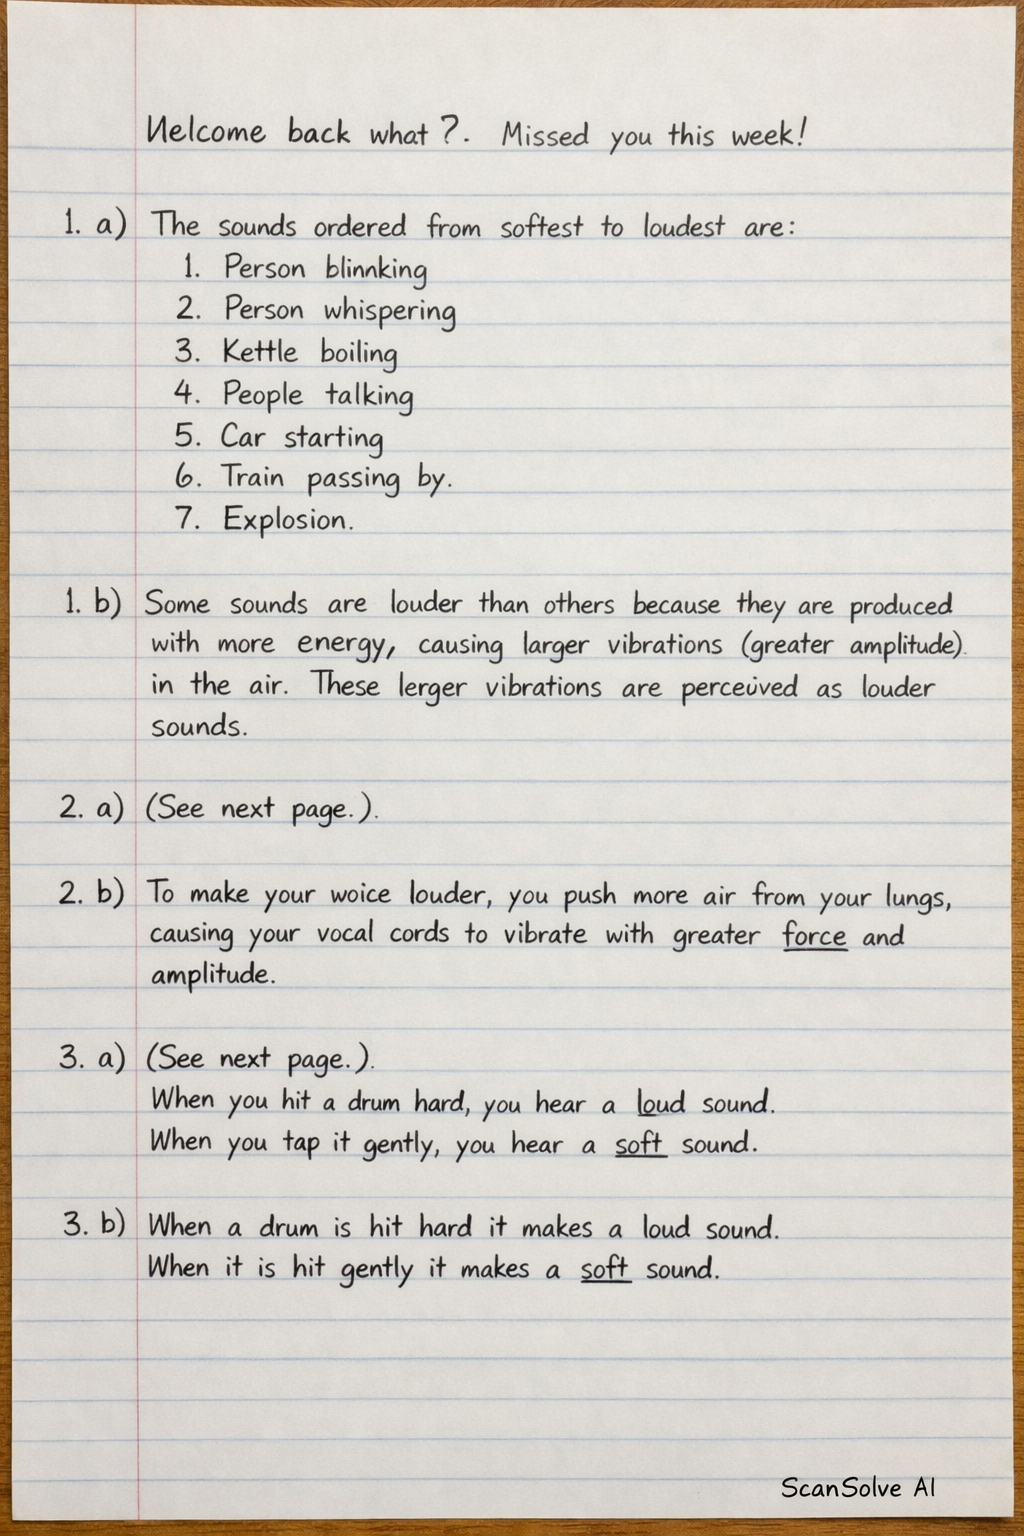 Nelcome back what ?. Missed you this week!
1. a) The sounds ordered from softest to loudest are:
1. Person blinnking
2. Person whispering
3. Kettle boiling
4. People talking
5. Car starting
6. Train passing by.
7. Explosion.
1. b) Some sounds are louder than others because they are produced
with more energy, causing larger vibrations (greater amplitude).
in the air. These lerger vibrations are perceived as louder
sounds.
2. a) (See next page.).
2. b) To make your woice louder, you push more air from your lungs,
causing your vocal cords to vibrate with greater force and
amplitude.
3. a) (See next page.).
When you hit a drum hard, you hear a loud sound.
When you tap it gently, you hear a soft sound.
3. b) When a drum is hit hard it makes a loud sound.
When it is hit gently it makes a soft sound.
ScanSolve AI